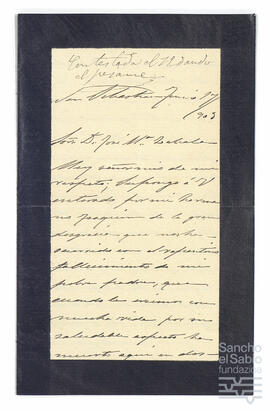 Contestada el 12 dando
el pesame
San Sebastian Junio 17
/903
Sor. D. José Mª
Muy señor mio de mi
respeto: Supongo á V
enterado por mi herma
no Joaquin de la gran
desgracia que nos ha
ocurrido con el repentino
fallecimiento de mi
pobre padre, que
cuando le vimos con
mucha vida por su
saludable aspecto ha
muerto aqui en dos
Sancho
el Sabio
fundazioa